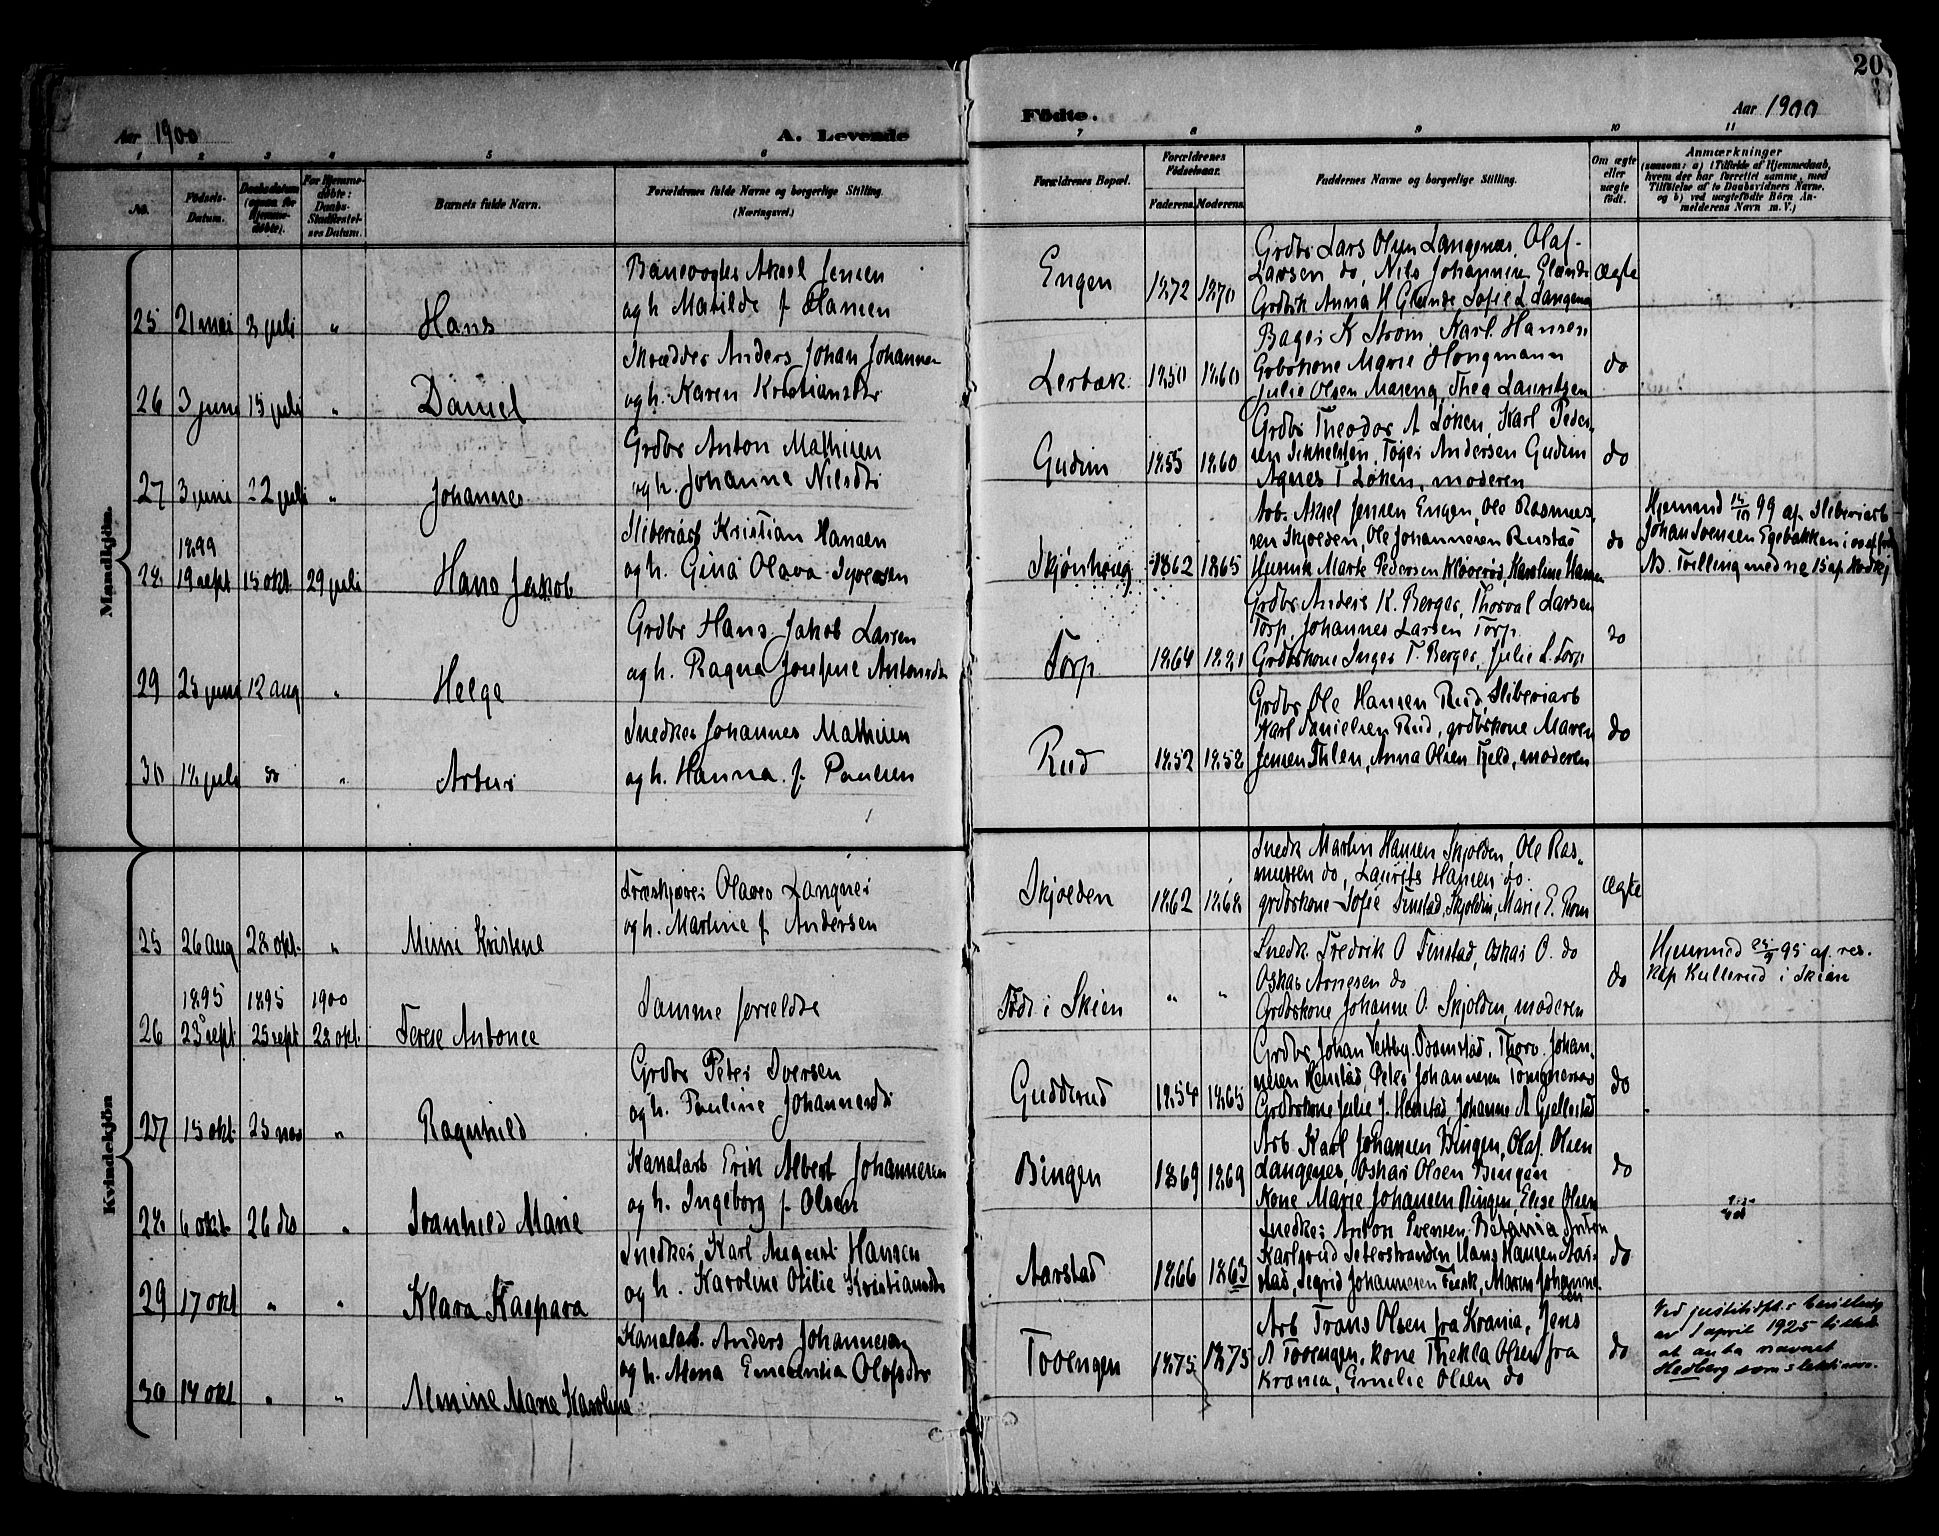 20
Aar 1900
A. Levende
Födte.
Aar 1900
1 2 3 4 5 6 7 8 9 10 11
No.
Födsels-
Datum.
Daabsdatum
(ogsaa for
Hjemme-
döbte).
For Hjemme-
döbte:
Daabs-
Stadfæstel-
ses Datum.
Barnets fulde Navn.
Forældrenes fulde Navne og borgerlige Stilling.
(Næringsvei.)
Forældrenes Bopæl.
Forældrenes
Födselsaar.
Faderens. Moderens.
Faddernes Navne og borgerlig Stilling.
Om ægte
eller
uægte
födt.
Anmærkninger
(saasom: a) i Tilfælde af Hjemmedaab,
hvem der har forrettet samme, med
Tilföielse af to Daabsvidners Navne.
og b) ved uægtefödte Börn An-
melderens Navn m. V.)
Mandkjön.
25 21 mai 3 juli " Hans
Banevogter Aksel Jensen
og h. Matilde f Hansen
Engen 1872 1870
Grdbr Lars Olsen Langenæs, Olaf
Larsen do, Nils Johannesen
Grdbsk Anna H Sofie L Langenæs
ægte
26 3 juni 15 juli " Daniel
Skrædder Anders Johan Johannesen
og h. Karen Kristiansdtr
Lerbæk 1850 1860
Bager K Strøm, Karl Hansen
Marie Hongmann
Julie Olsen Mareng, Thea Lauritzen
do
27 3 juni 22 juli " Johannes
Grdbr Anton Mathisen
og h. Johanne Nilsdtr
Gudim 1855 1860
Grdbr Theodor A Løken, Karl Peder-
sen Andersen Gudim
Agnes T Løken, moderen
do
28 1899
19 sept 15 okt 29 juli Hans Jakob
Sliberiarb Kristian Hansen
og h. Gina Olava Syversen
Skjønhaug 1862 1865
Arb. Aksel Jensen Engen, Ole Rasmus-
sen Skjolden, Ole Johannesen Rustad
Marte Pedersen Kløverød, Karoline Hansen
do
Hjemmed 99 af Sliberiarb
Johan Svensen Egebakken
Nb. Tvilling med no 15
29 25 juni 12 aug " Helge
Grdbr Hans Jakob Larsen
og h. Ragna Josefine Antonsdtr
Torp 1864 1881
Grdbr Anders K. Berger, Thorval Larsen
Torp, Johannes Larsen Torp.
Grdbrskone Inger T. Berger, Julie L. Torp
do
30 18 juli do " Artur
Snedker Johannes Mathisen
og h. Hanna f Paulsen
Rud 1852 1858
Grdbr Ole Hansen Rud, Sliberiarb
Karl Danielsen Rud, grdbskone Maren
Jensen Ihlen, Anna Olsen Fjeld, moderen
do
Kvindekjön
25 26 aug 28 okt. " Mimi Kristine
Olaves Langnes
og h. Martine f Andersen
Skjolden 1862 1868
Snedk Martin Hansen Skjolden, Ole Ras-
mussen do, Laurits Hansen do.
grdbrskone Sofie Finstad, Skjolden, Marie E. Thom
ægte
26 1895 1895 1900
23 sept 25 sept 28 okt. Terese Antonee
Samme forældre
Født i Skien " "
Snedk Fredrik O Finstad, Oskar O. do
Oskar Arnesen do
Grdbrskone Johanne O. Skjolden, moderen
do
Hjemmed 95 af res.
kap Kullerud i Skien
27 15 okt. 25 nov " Ragnhild
Grdbr Peter Iversen
og h. Pauline Johannesdtr
Gudderud 1854 1865
Grdbr Johan Vestby, Thorv. Johan-
nesen Henstad, Peter Johannesen
Grdbrskone Julie J. Henstad, Johanne A Gjellestad
do
28 6 okt 26 do " Svanhild Marie
Kanalarb Erik Albert Johannesen
og h. Ingeborg f Olsen
Bingen 1869 1869
Arb. Karl Johansen Bingen, Olaf Olsen
Langenes, Oskar Olsen Bingen
Kone Marie Johansen Bingen, Elise Olsen
do
29 17 okt " " Klara Kaspara
Snedker Karl August Hansen
og h. Karoline Otilie Kristiansdtr
Aarstad 1866 1863
Snedker Anton Svensen, Betania Anton
Karlsrud Seterstranden, Hans Hansen Aar-
stad, Sigrid Johannesen Fusk, Maren Johanne-
sen
do
30 14 okt " " Almine Marie Karoline
Kanalarb. Anders Johannesen
og h. Alma Emerentia Olafsdtr
Tovengen 1875 1875
Arb Frans Olsen fra Krania, Jens
A Tovengen, kone Thekla Olsen fra
Krania, Emelie Olsen do
do
Ved justitsdpt.s bevilling
av 1 april 1925 tillatt
at anta navnet
Hedberg som slektsnavn.